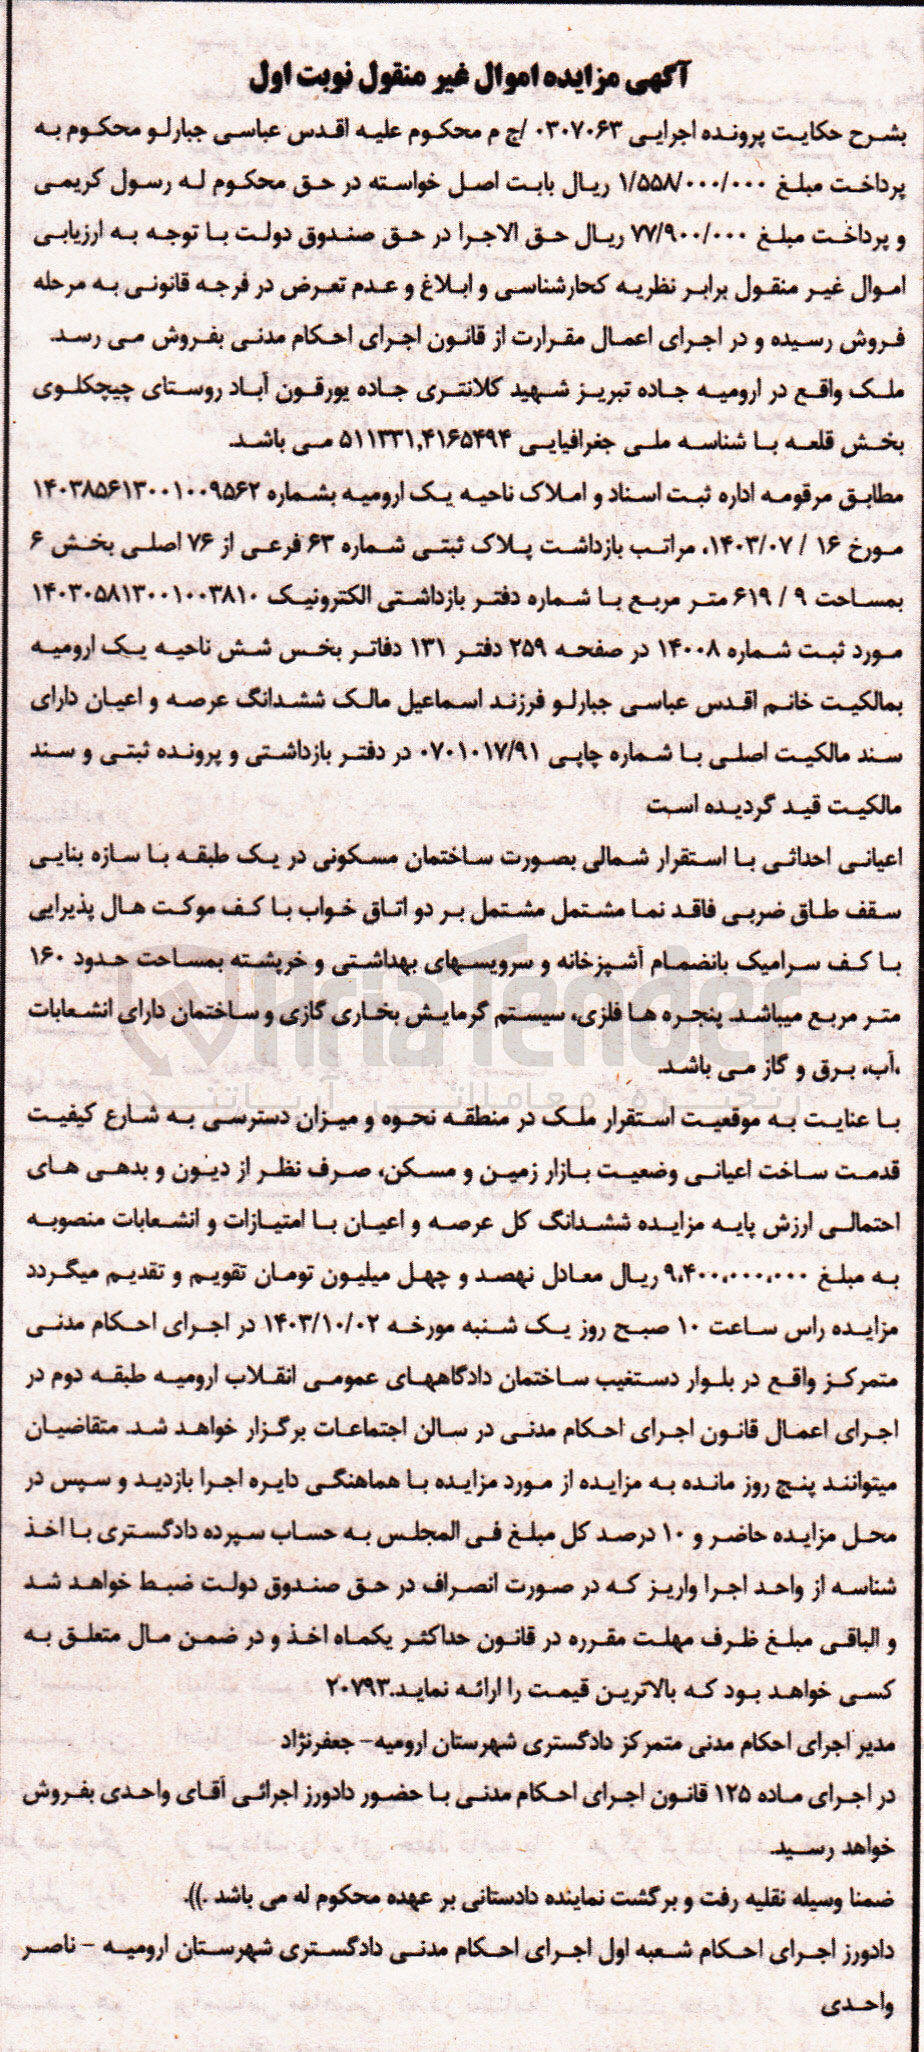 آگهی مزایده اموال غیر منقول نوبت اول
بشرح حکایت پرونده اجرایی ۰۳۰۷۰۶۳ /ج م محکوم علیه اقدس عباسی جبارلو محکوم به
پرداخت مبلغ ۱/۵۵۸/۰۰۰/۰۰۰ ریال بابت اصل خواسته در حق محکوم له رسول کریمی
و پرداخت مبلغ ۷۷/۹۰۰/۰۰۰ ریال حق الاجرا در حق صندوق دولت با توجه به ارزیابی
اموال غیر منقول برابر نظریه کحارشناسی و ابلاغ و عدم تعرض در فرجه قانونی به مرحله
فروش رسیده و در اجرای اعمال مقرارت از قانون اجرای احکام مدنی بفروش می رسد.
ملک واقع در ارومیه جاده تبریز شهید کلانتری جاده یورقون آباد روستای چیچکلوی
بخش قلعه با شناسه ملی جغرافیایی ۵۱۱۳۳۱,۴۱۶۵۴۹۴ می باشد.
مطابق مرقومه اداره ثبت اسناد و املاک ناحیه یک ارومیه بشماره ۱۴۰۳۸۵۶۱۳۰۰۱۰۰۹۵۶۲
مورخ ۱۶ / ۱۴۰۳/۰۷، مراتب بازداشت پلاک ثبتی شماره ۶۳ فرعی از ۷۶ اصلی بخش ۶
بمساحت ۹ / ۶۱۹ متر مربع با شماره دفتر بازداشتی الکترونیک ۱۴۰۳۰۵۸۱۳۰۰۱۰۰۳۸۱۰
مورد ثبت شماره ۱۴۰۰۸ در صفحه ۲۵۹ دفتر ۱۳۱ دفاتر بخس شش ناحیه یک ارومیه
بمالکیت خانم اقدس عباسی جبارلو فرزند اسماعیل مالک ششدانگ عرصه و اعیان دارای
سند مالکیت اصلی با شماره چاپی ۰۷۰۱۰۱۷/۹۱ در دفتر بازداشتی و پرونده ثبتی و سند
مالکیت قید گردیده است
اعیانی احداثی با استقرار شمالی بصورت ساختمان مسکونی در یک طبقه با سازه بنایی
سقف طاق ضربی فاقد نما مشتمل مشتمل بر دو اتاق خواب با کف موکت هال پذیرایی
با کف سرامیک بانضمام آشپزخانه و سرویسهای بهداشتی و خرپشته بمساحت حدود ۱۶۰
متر مربع میباشد. پنجره ها فلزی، سیستم گرمایش بخاری گازی و ساختمان دارای انشعابات
،آب، برق و گاز می باشد.
با عنایت به موقعیت استقرار ملک در منطقه نحوه و میزان دسترسی به شارع کیفیت
قدمت ساخت اعیانی وضعیت بازار زمین و مسکن، صرف نظر از دیون و بدهی های
احتمالی ارزش پایه مزایده ششدانگ کل عرصه و اعیان با امتیازات و انشعابات منصوبه
به مبلغ ۹،۴۰۰،۰۰۰،۰۰۰ ریال معادل نهصد و چهل میلیون تومان تقویم و تقدیم میگردد
مزایده راس ساعت ۱۰ صبح روز یک شنبه مورخه ۱۴۰۳/۱۰/۰۲ در اجرای احکام مدنی
متمرکز واقع در بلوار دستغیب ساختمان دادگاههای عمومی انقلاب ارومیه طبقه دوم در
اجرای اعمال قانون اجرای احکام مدنی در سالن اجتماعات برگزار خواهد شد. متقاضیان
میتوانند پنج روز مانده به مزایده از مورد مزایده با هماهنگی دایره اجرا بازدید و سپس در
محل مزایده حاضر و ۱۰ درصد کل مبلغ فی المجلس به حساب سپرده دادگستری با اخذ
شناسه از واحد اجرا واریز که در صورت انصراف در حق صندوق دولت ضبط خواهد شد
و الباقی مبلغ ظرف مهلت مقرره در قانون حداکثر یکماه اخذ و در ضمن مال متعلق به
کسی خواهد بود که بالاترین قیمت را ارائه نماید.۲۰۷۹۳
مدیر اجرای احکام مدنی متمرکز دادگستری شهرستان ارومیه– جعفرنژاد
در اجرای ماده ۱۲۵ قانون اجرای احکام مدنی با حضور دادورز اجرائی آقای واحدی بفروش
خواهد رسید.
ضمنا وسیله نقلیه رفت و برگشت نماینده دادستانی بر عهده محکوم له می باشد .)).
دادورز اجرای احکام شعبه اول اجرای احکام مدنی دادگستری شهرستان ارومیه – ناصر
واحدی
AriaTender
زنجیره معاملاتی آریاتندر